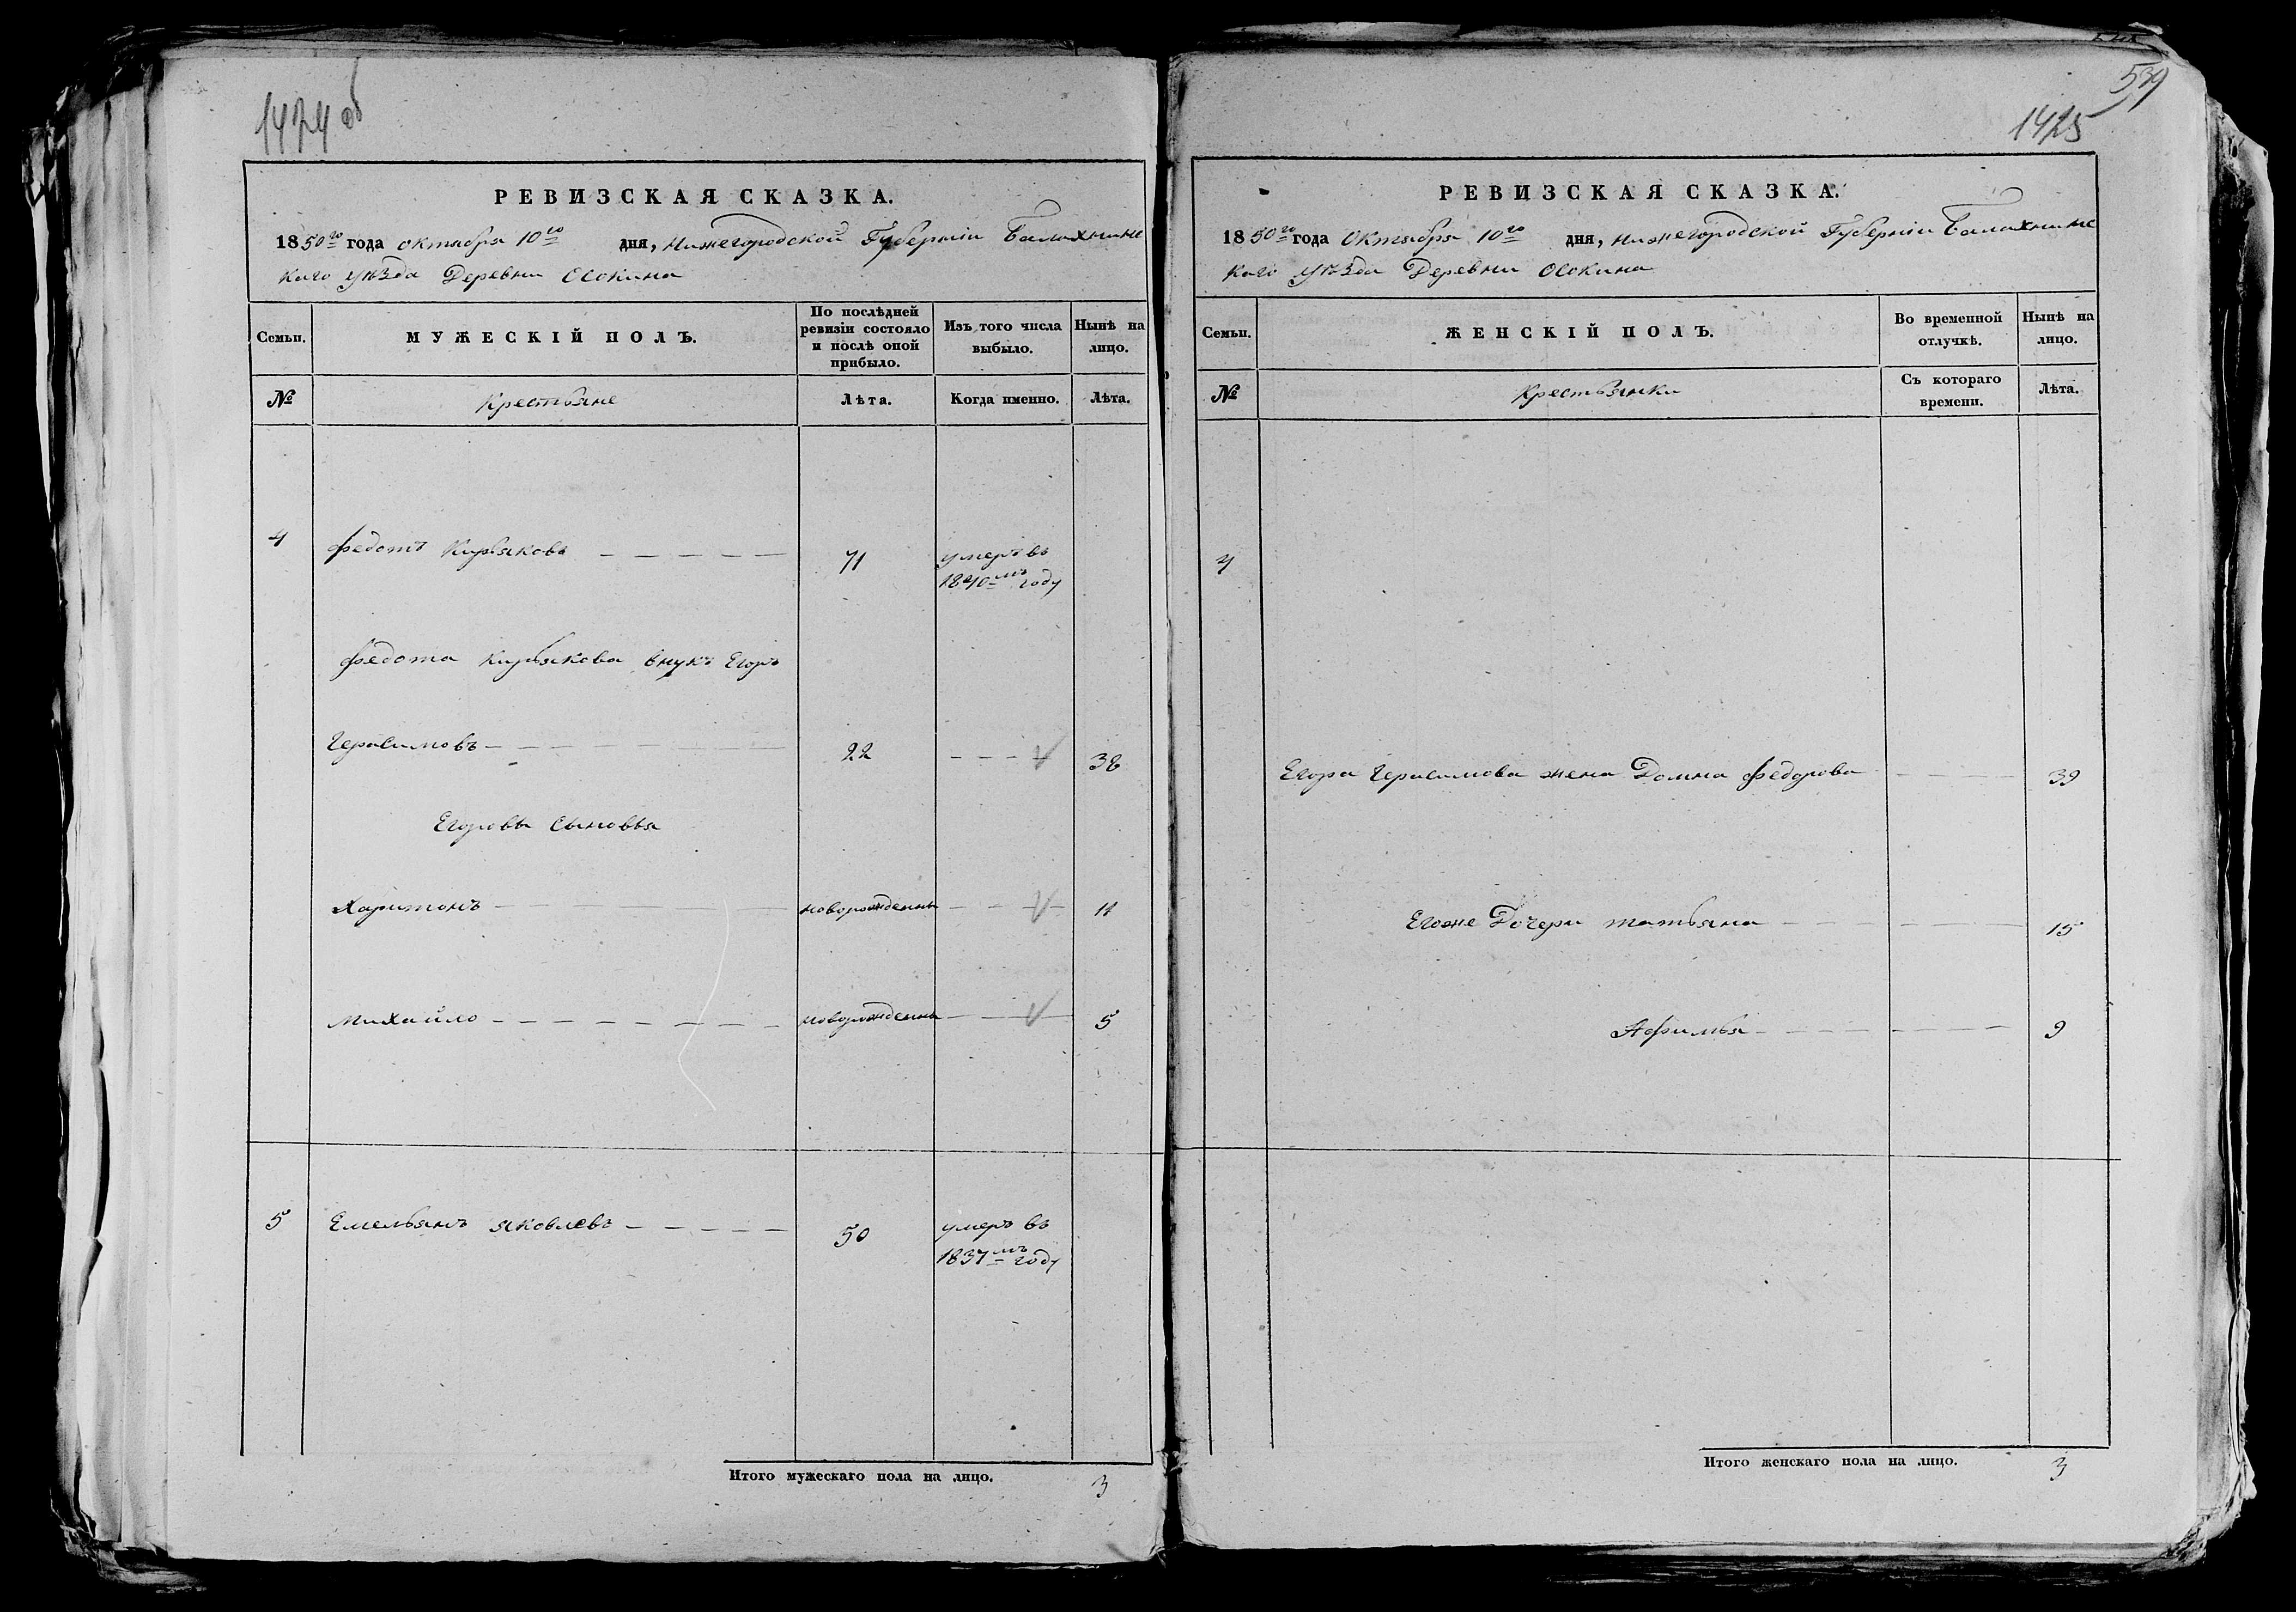 1424 об
РЕВИЗСКАЯ СКАЗКА.
1850го года октября 10го дня, Нижегородской Губернiи Балахнинс
каго уѣзда Деревни Осокина
Семьи.
МУЖЕСКIЙ ПОЛЪ.
По послѣдней
ревизiи состояло
и послѣ оной
прибыло.
Изъ того числа
выбыло.
Нынѣ на
лицо.
№
Крестьяне
Лѣта.
Когда именно.
Лѣта.
4
Федотъ Кирьяковъ
71
умеръ въ
1840мъ году
Федота Кирьякова внукъ Егоръ
Герасимовъ
22
38
Егоровы сыновья
Харитонъ
новорожденны
11
Михайло
новорожденны
5
5
Емельянъ Яковлевъ
50
умеръ въ
1837мъ году
Итого мужескаго пола на лицо.
3
539
1425
РЕВИЗСКАЯ СКАЗКА.
1850го года Октября 10го дня, Нижегородской Губернiи Балахнинс
каго уѣзда Деревни Осокина
Семьи.
ЖЕНСКIЙ ПОЛЪ.
Во временной
отлучкѣ.
Нынѣ на
лицо.
№
Крестьянки
Съ котораго
времени.
Лѣта.
4
Егора Герасимова жена Домна Федорова
39
Егоже Дочери татьяна
15
Афимья
9
Итого женскаго пола на лицо.
3